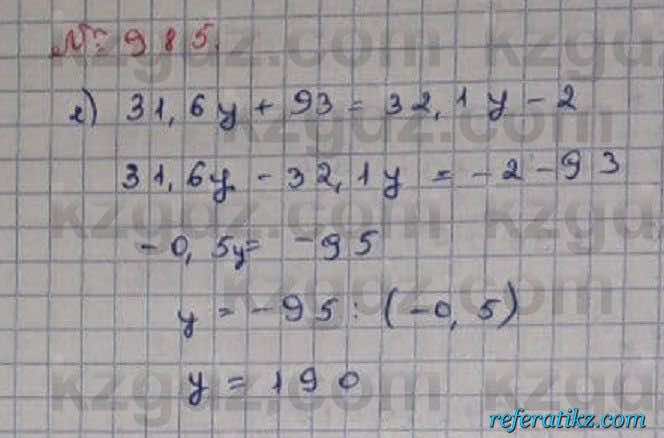 № 985.
е) 31,6y + 93 = 32,1y - 2
31,6y - 32,1y = -2 - 93
-0,5y = -95
y = -95 : (-0,5)
y = 190
kzgdz.com
referatikz.com